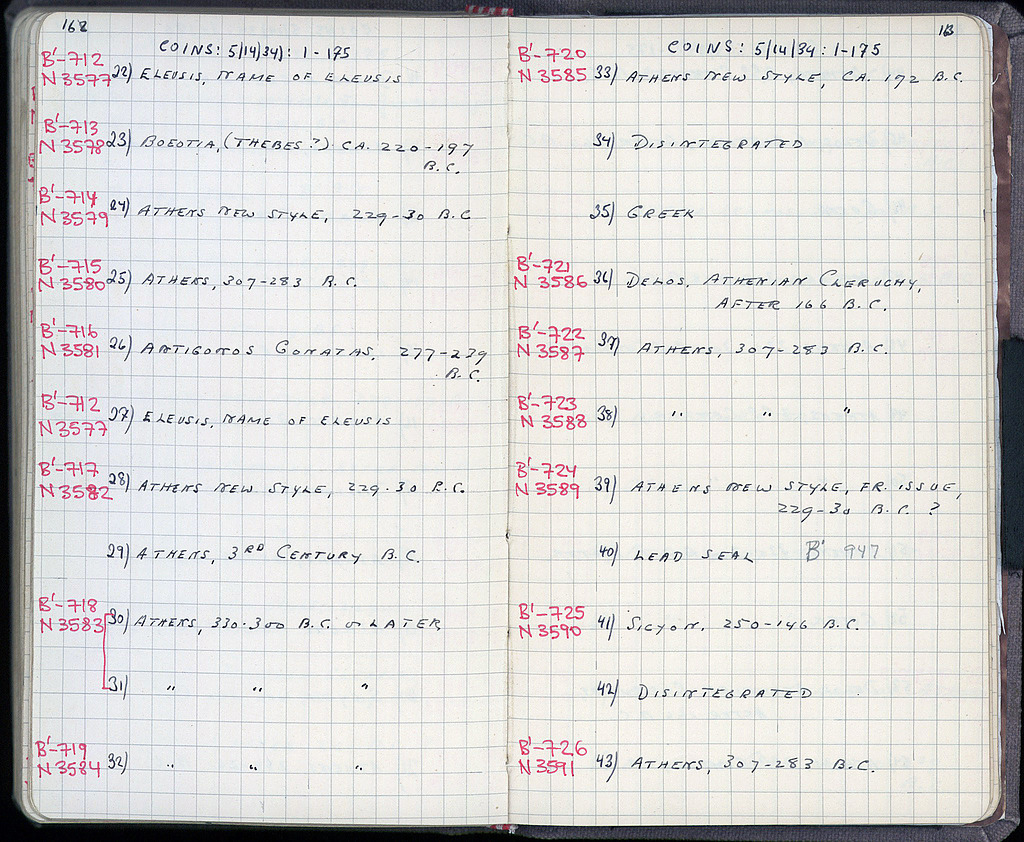 168
COINS: 5/14/34): 1-175
B'-712
N 3577 22) ELEUSIS, NAME OF ELEUSIS
B'-713
N 3578 23) BOEOTIA, (THEBES?) CA. 220-197
B.C.
B'-714
N 3579 24) ATHENS NEW STYLE, 229-30 B.C
B'-715
N 3580 25) ATHENS, 307-283 B.C.
B'-716
N 3581 26) ANTIGONOS GONATAS, 277-239
B.C.
B'-712
N 3577 27) ELEUSIS, NAME OF ELEUSIS
B'-717
N 3582 28) ATHENS NEW STYLE, 229-30 B.C.
29) ATHENS, 3RD CENTURY B.C.
B'-718
N 3583 30) ATHENS, 330-300 B.C. or LATER
31) " " "
B'-719
N 3584 32) " " "
COINS: 5/14/34: 1-175
B'-720
N 3585 33) ATHENS NEW STYLE, CA. 172 B.C.
34) DISINTEGRATED
35) GREEK
B'-721
N 3586 36) DELOS, ATHENIAN CLERUCHY,
AFTER 166 B.C.
B'-722
N 3587 37) ATHENS, 307-283 B.C.
B'-723
N 3588 38) " " "
B'-724
N 3589 39) ATHENS NEW STYLE, FR. ISSUE,
229-30 B.C. ?
40) LEAD SEAL B' 947
B'-725
N 3590 41) SICYON, 250-146 B.C.
42) DISINTEGRATED
B'-726
N 3591 43) ATHENS, 307-283 B.C.